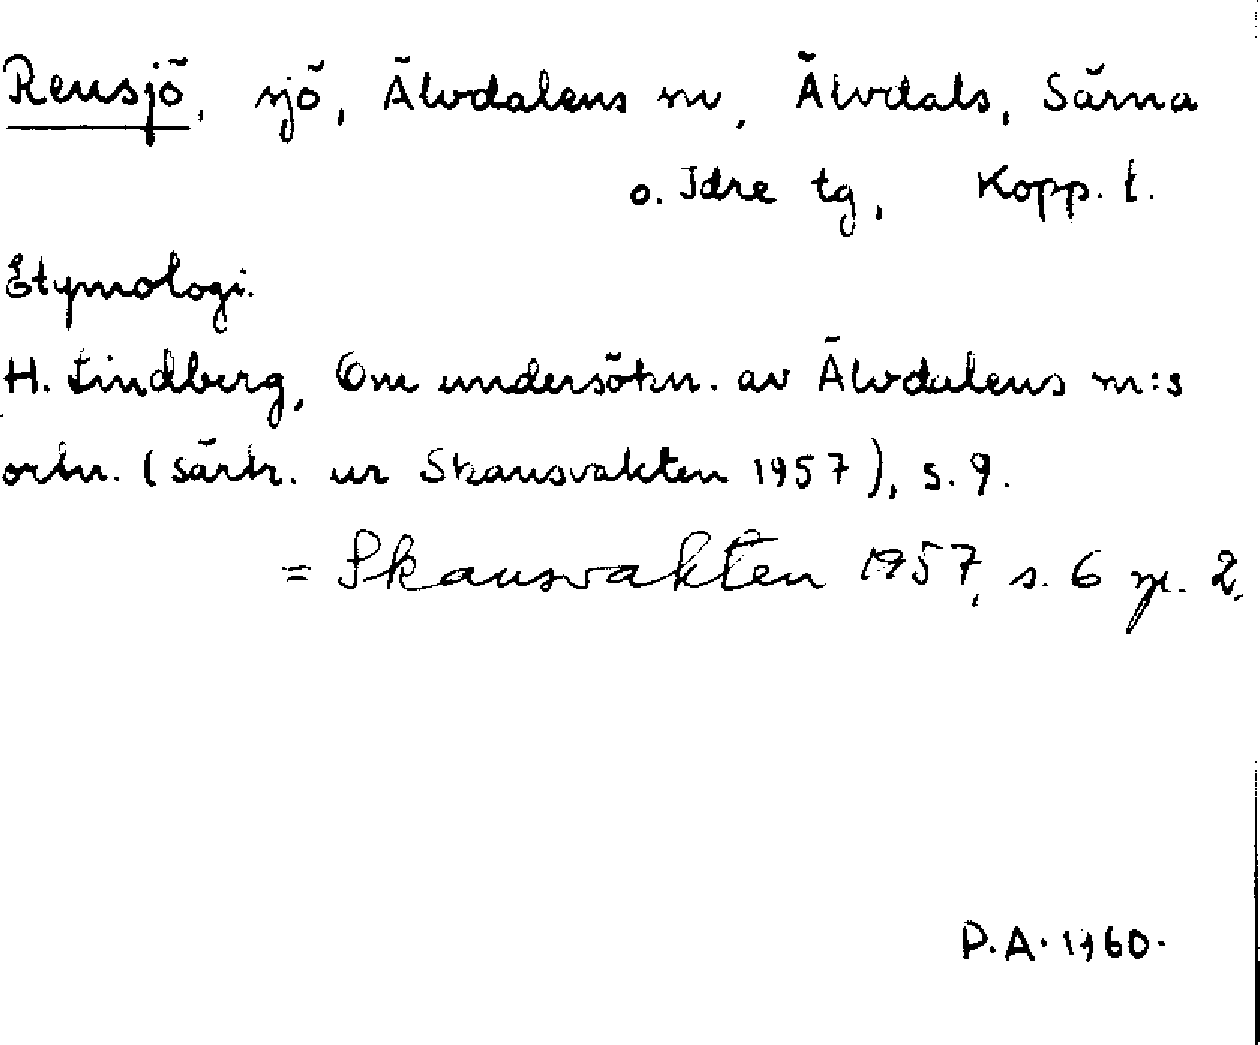 Rensjö, sjö, Älvdalens m, Älvdals, Särna
o. Idre tg, Kopp. l.
Etymologi.
H. Lindberg, Om undersökn. av Älvdalens m:s
ortn. (särtr. ur Skansvakten 1957), s. 9.
= Skansvakten 1957, s. 6 sp. 2.
P.A. 1960.